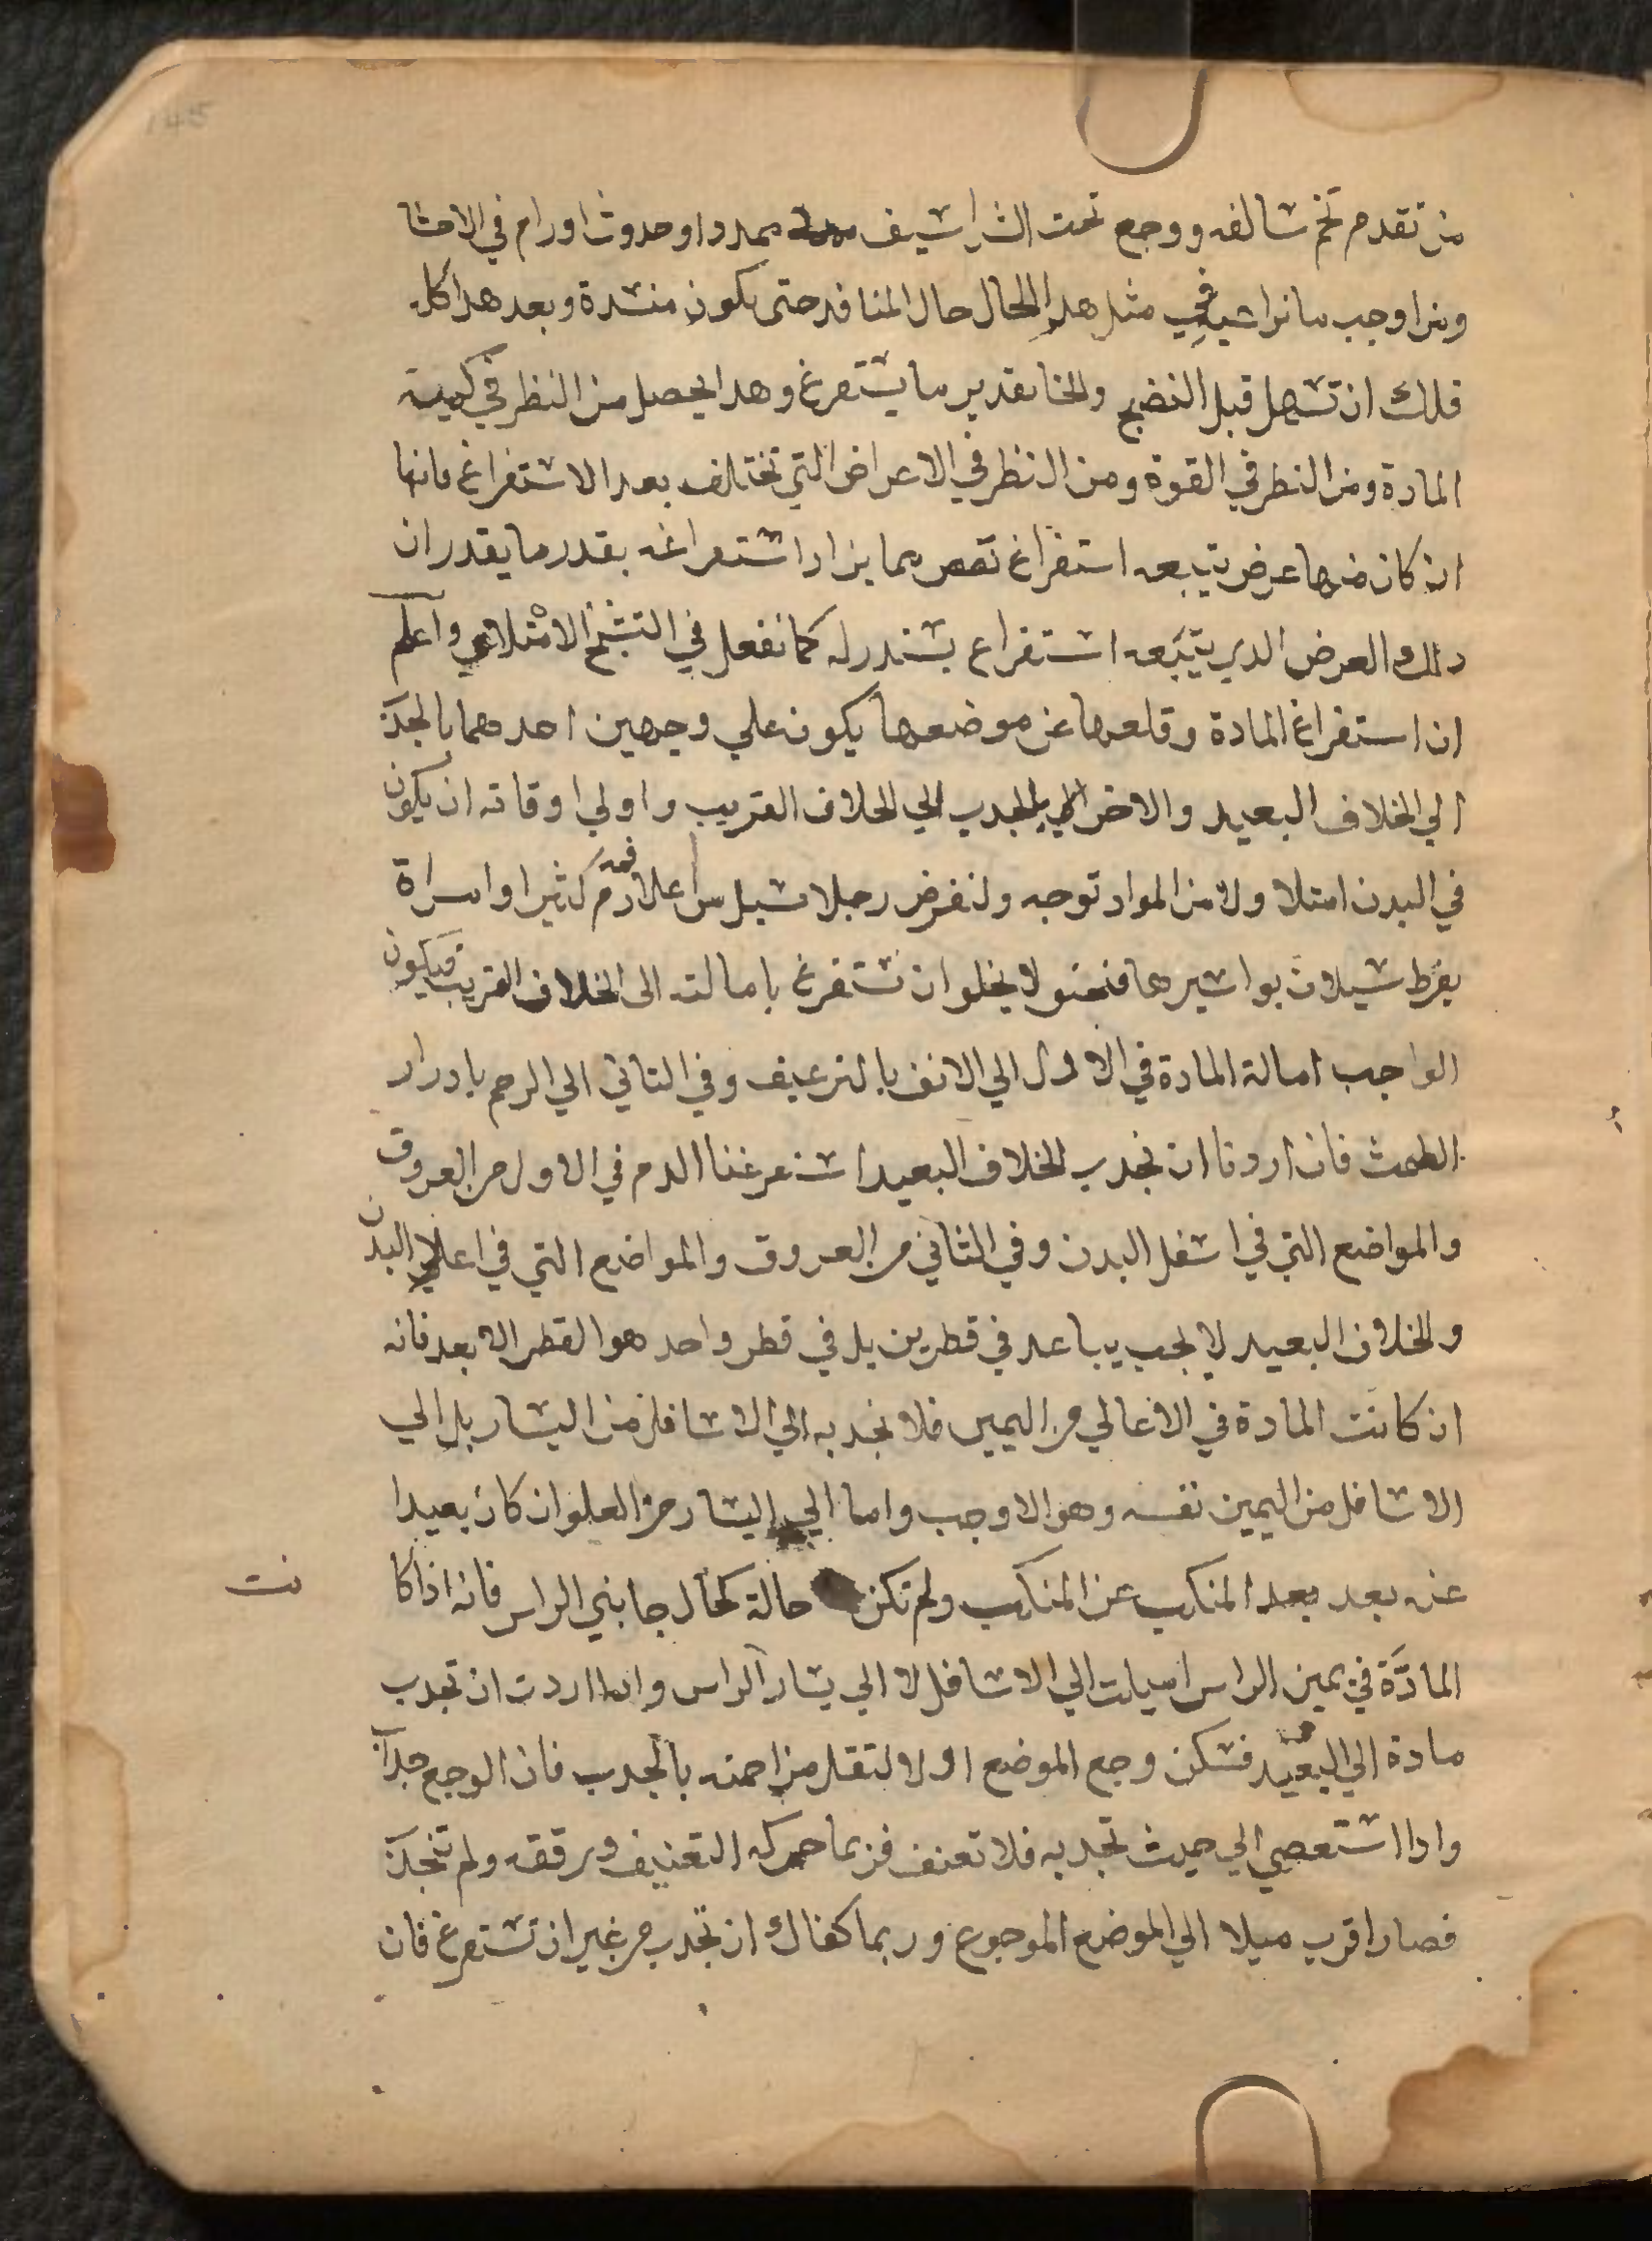 من تقدم تخم سالفه ووجع تحت الشراسيف ممددا وحدوث اورام في الاحشا
ومن اوجب ما نراعيه في مثل هدا الحال حال المنافد حتى يكون منسدة وبعد هدا كله
فلك ان تسهل قبل النضج والخا تقدير ما يستفرغ وهدا يحصل من النظر في كمية
المادة ومن النظر في القوة ومن النظر في الاعراض التي تختلف بعد الاستفراغ فانها
ان كان منها عرض يتبعه استفراغ نقص مما يراد استفراغه بقدر ما يقدر ان
دلك العرض الدي يتبعه استفراغ يستدرله كما نفعل في التشنج الامتلاي واعلم
ان استفراغ المادة وقلعها عن موضعها يكون علي وجهين احدهما بالجدب
الي الخلاف البعيد والاخر بالجدب الي الخلاف القريب واولي اوقاته ان يكون
في البدن امتلا ولا من المواد توجه ولنفرض رجلا سيل من اعلا فمه دم كثير او امراة
يفرط سيلان بواسيرها فنحن لا يخلو ان نستفرغ بامالته الى الخلاف القريب فيكون
الواجب امالة المادة في الاول الي الانف بالترعيف وفي الثاني الي الرحم بادرار
الطمث فان اردنا ان نجدب للخلاف البعيد استفرغنا الدم في الاول من العروق
والمواضع التي في اسفل البدن وفي الثاني من العروق والمواضع التي في اعلي البدن
والخلاف البعيد لا يجب يباعد في قطرين بل في قطر واحد هو القطر الابعد فانه
ان كانت المادة في الاعالي من اليمين فلا نجدبه الي الاسافل من اليسار بل الي
الاسافل من اليمين نفسه وهو الاوجب واما الي اليسار من العلو ان كان بعيدا
عنه بعد بعد المنكب عن المنكب ولم تكن حالة كحال جانبي الراس فانه اذا كا نت
المادّة في يمين الراس اميلت الي الاسافل لا الي يسار الراس وادا اردت ان تجدب
مادة الي البعيد فسكن وجع الموضع اولا لتقل مزاحمته بالجدب فان الوجع جداب
وادا استعصي الي حيث تجدبه فلا تعنف فربما حركه التعنيف ورققه ولم تنجدب
فصار اقرب ميلا الي الموضع الموجوع وربما كفاك ان تجدب من غير ان تستفرغ فان